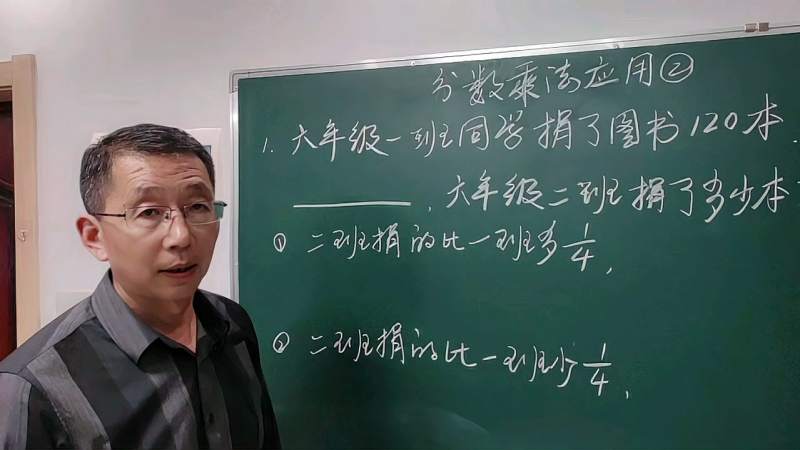 分数乘法应用②
1. 六年级一班同学捐了图书120本.
______. 六年级二班捐了多少本
① 二班捐的比一班多1/4,
② 二班捐的比一班少1/4,